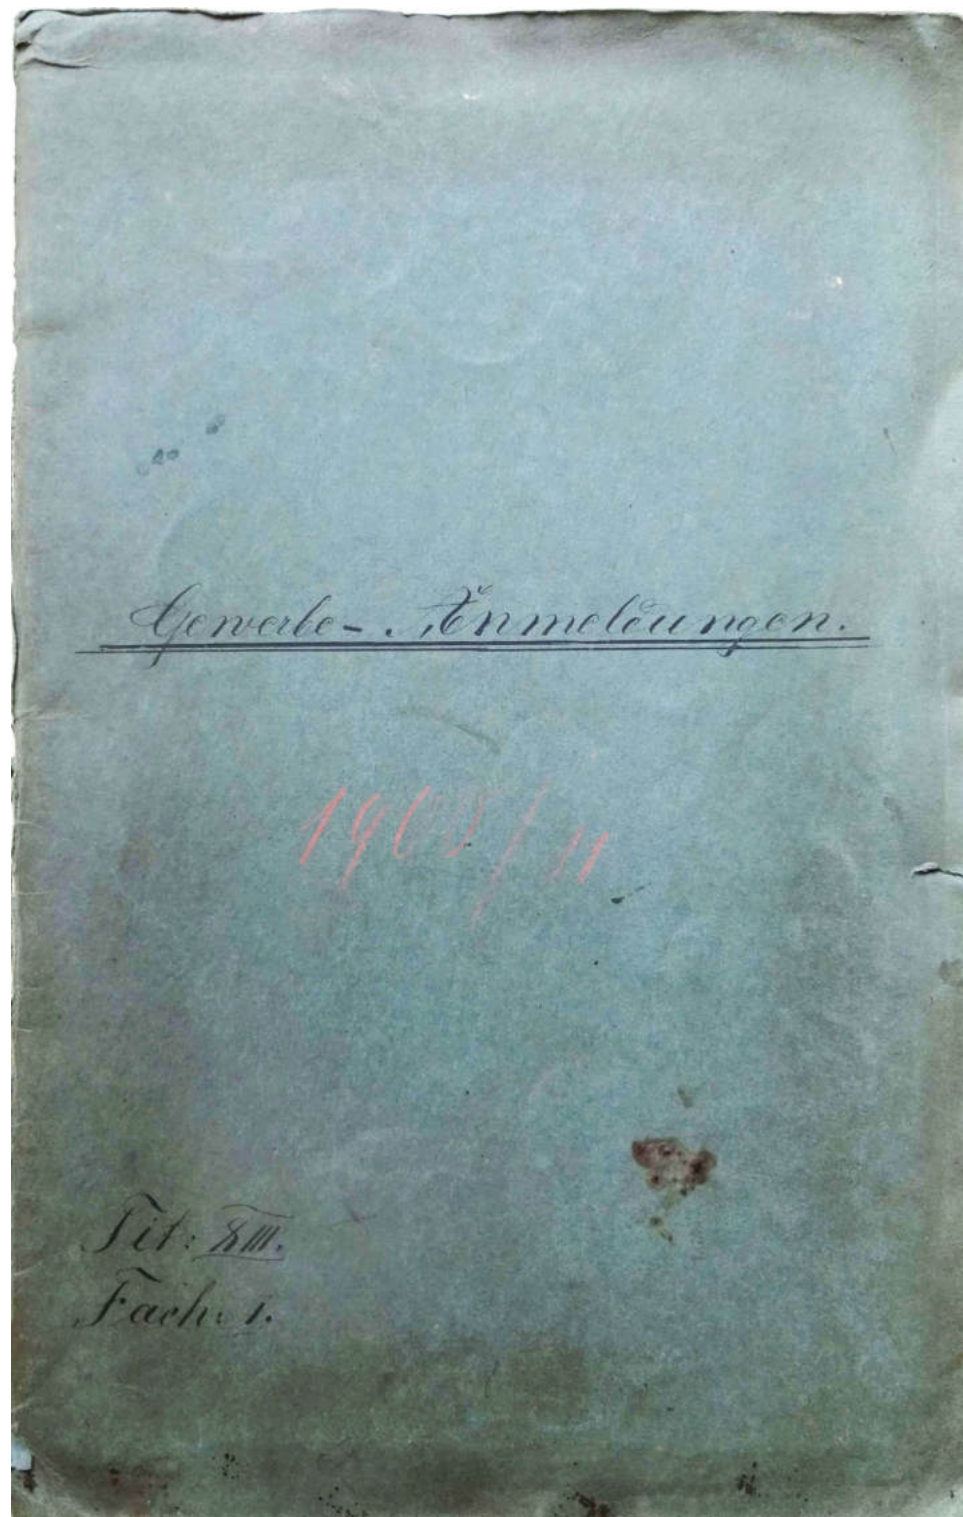 Gewerbe- Anmeldungen.
1900/11
Tit: XIII.
Fach: 1.